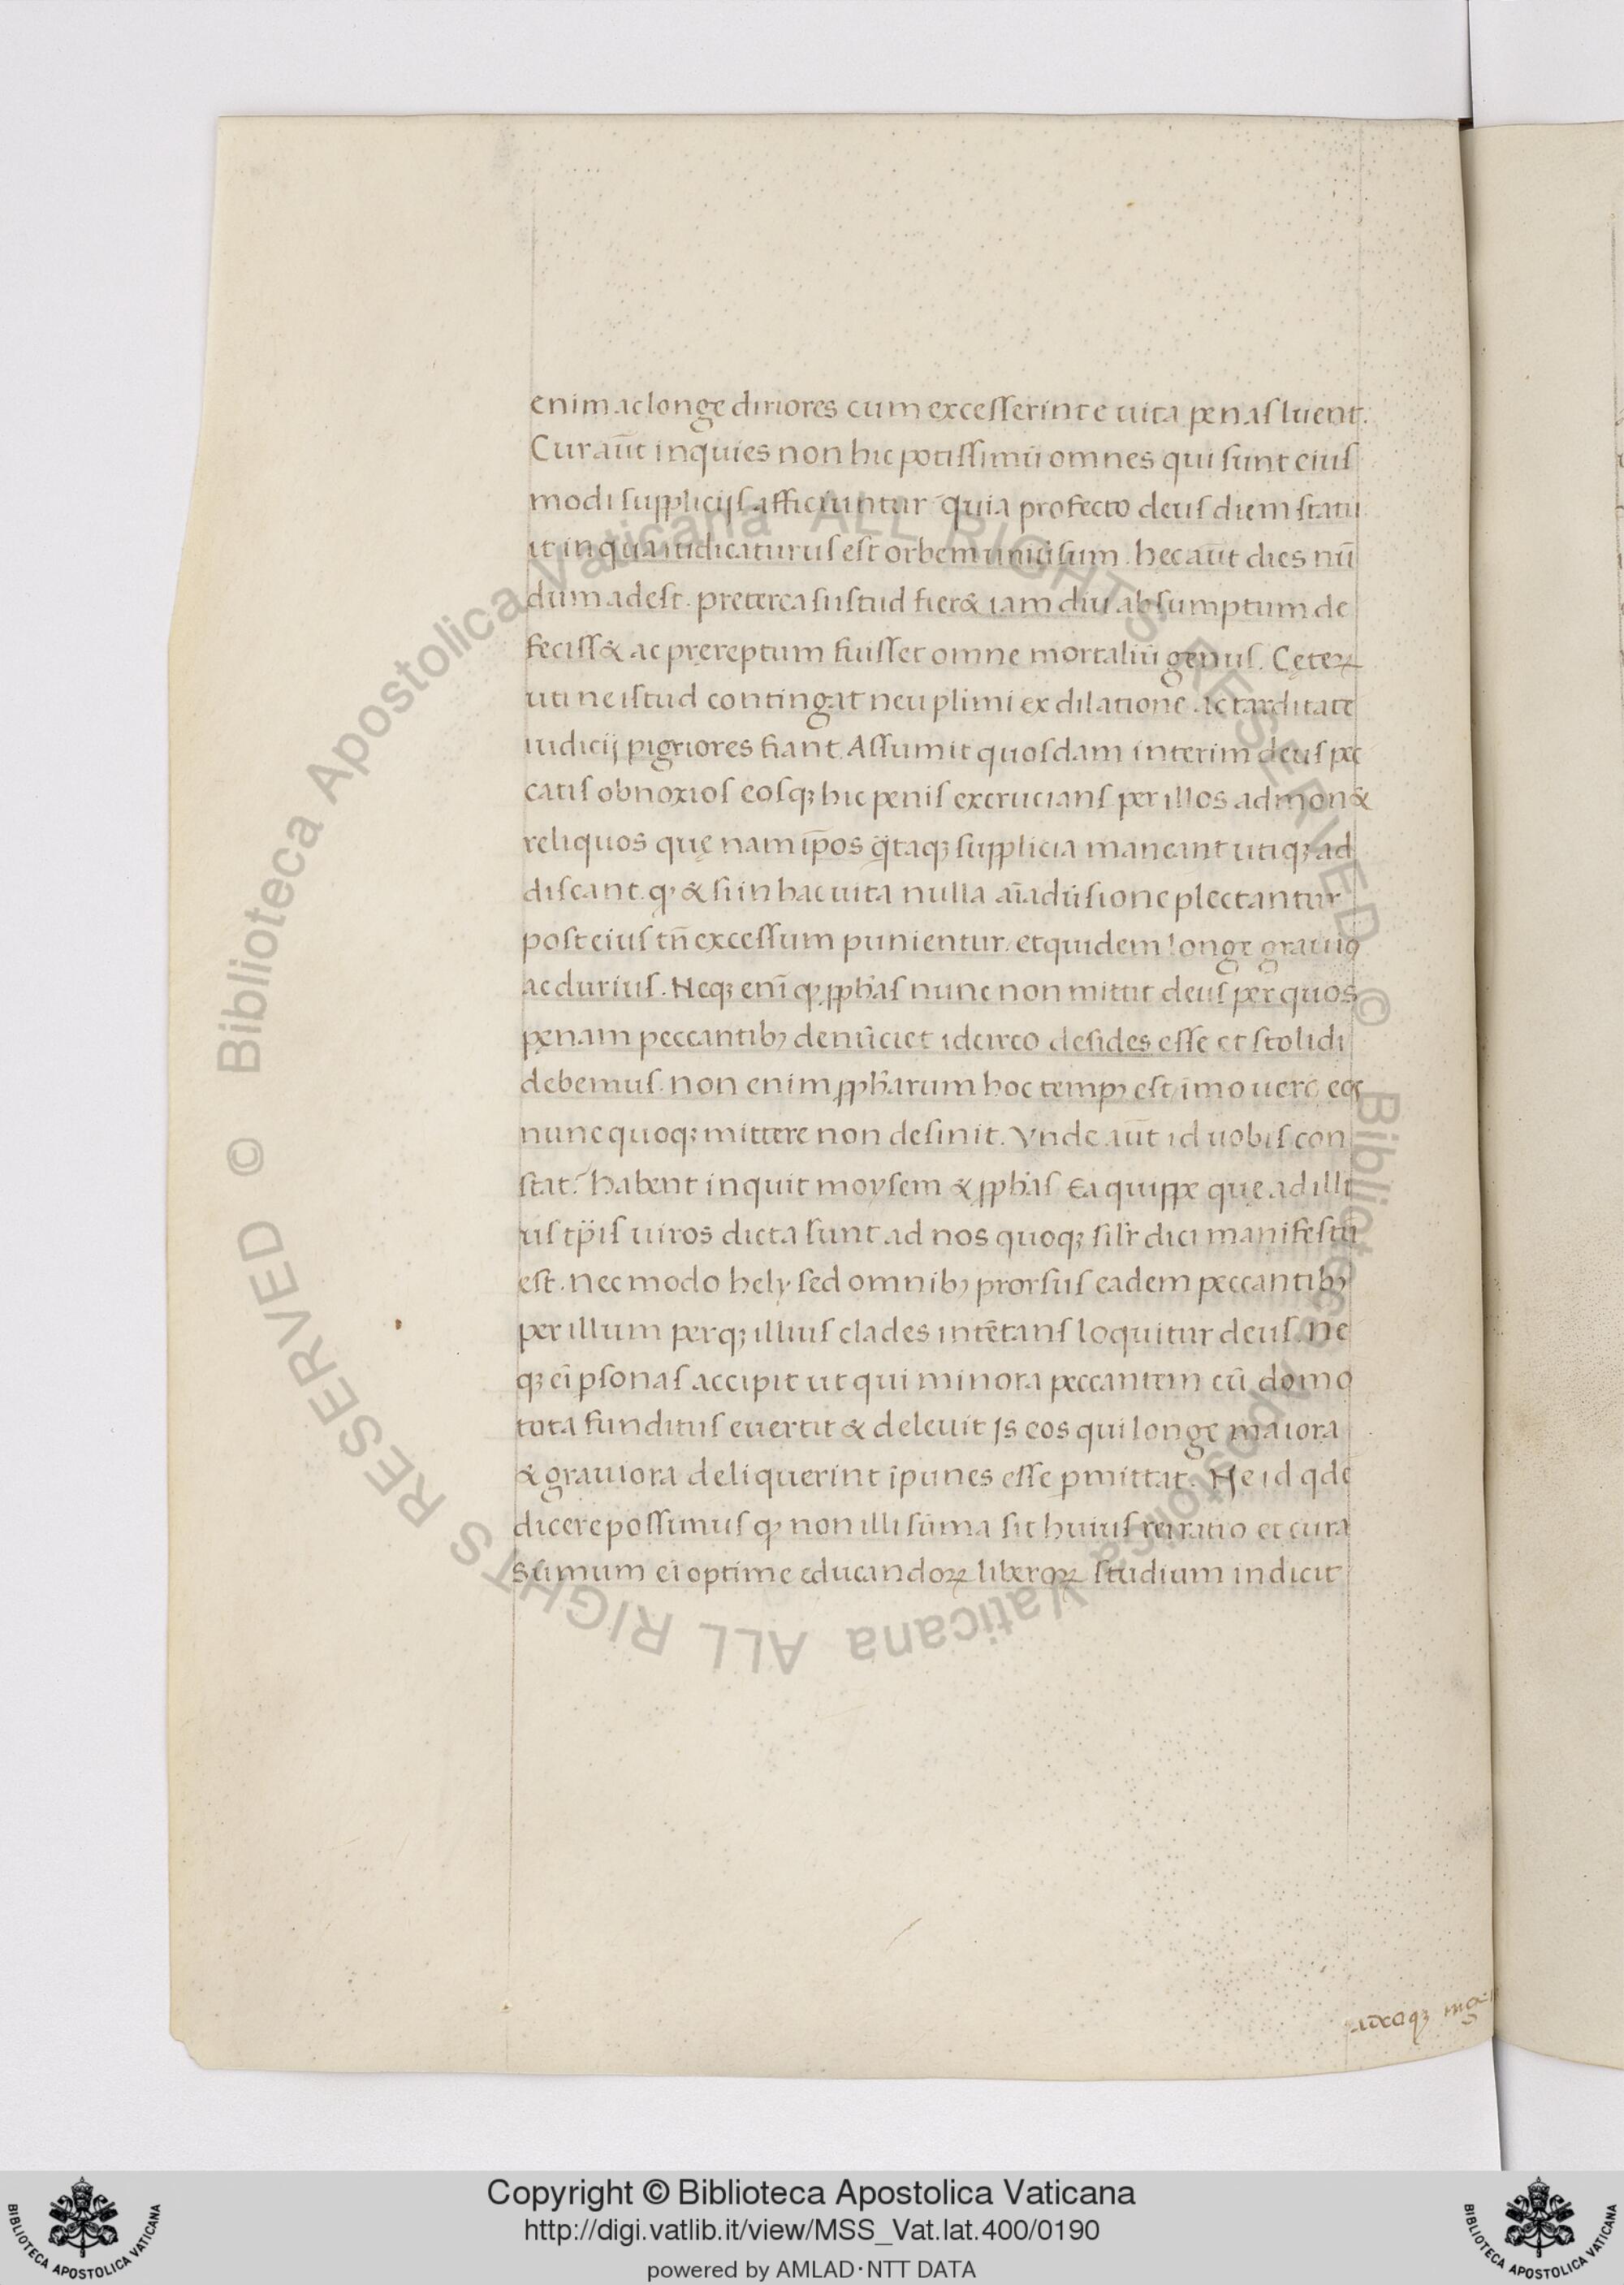 enim ac longe diriores cum excesserint e uita penas luent.
Cur aūt inquies non hic potissimū omnes qui sunt eius
modi supplicijs afficiuntur quia profecto deus diem statu
it in qua iudicaturus est orbem uniūsum. hec aūt dies nū
dum adest. preterea si istud fier& iam diu absumptum de
feciss& ac prereptum fuisset omne mortaliū genus. Cęteꝝ
uti ne istud contingat neu plimi ex dilatione ac tarditate
iudicij pigriores fiant. Assumit quosdam interim deus pec
catis obnoxios eosqꝫ hic penis excrucians per illos admon&
reliquos quę nam ip̄os q̄taqꝫ supplicia maneant utiqꝫ ad
discant. qꝫ & si in hac uita nulla aīadūsione plectantur
post eius tn̄ excessum punientur. et quidem longe grauiꝰ
ac durius. Neqꝫ enī qꝫ ꝓph̄as nunc non mittit deus per quos
penam peccantibꝫ denūciet idcirco desides esse et stolidi
debemus. non enim ꝓph̄arum hoc tempꝫ est imo uero eos
nunc quoqꝫ mittere non desinit. Vnde aūt id uobis con
stat? habent inquit moysem & ꝓph̄as Ea quippe quę ad illi
us tp̄is uiros dicta sunt ad nos quoqꝫ silr̄ dici manifestū
est. nec modo hely sed omnibꝫ prorsus eadem peccantibꝫ
per illum perqꝫ illius clades intētans loquitur deus. Ne
qꝫ eī psonas accipit ut qui minora peccantem cū domo
tota funditus euertit & deleuit Is eos qui longe maiora
& grauiora deliquerint īpunes esse pmittat. Ne id qdē
dicere possumus qꝫ non illi sūma sit huius rei ratio et cura
Sūmum eī optime educandoꝝ liberoꝝ studium indicit
Copyright © Biblioteca Apostolica Vaticana
http://digi.vatlib.it/view/MSS_Vat.lat.400/0190
powered by AMLAD·NTT DATA
BIBLIOTECA APOSTOLICA VATICANA
BIBLIOTECA APOSTOLICA VATICANA
© Biblioteca Apostolica Vaticana ALL RIGHTS RESERVED
© Biblioteca Apostolica Vaticana ALL RIGHTS RESERVED